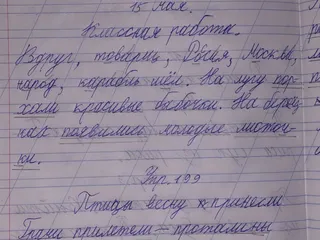 15 мая.
Классная работа.
Вдруг, товарищ, Россия, Москва,
народ, карабль шёл. На лугу пор-
хали красивые бабочки. На берёз-
ках появились молодые листоч-
ки.
Упр. 199
Птицы весну принесли
Грачи прилетели — проталины